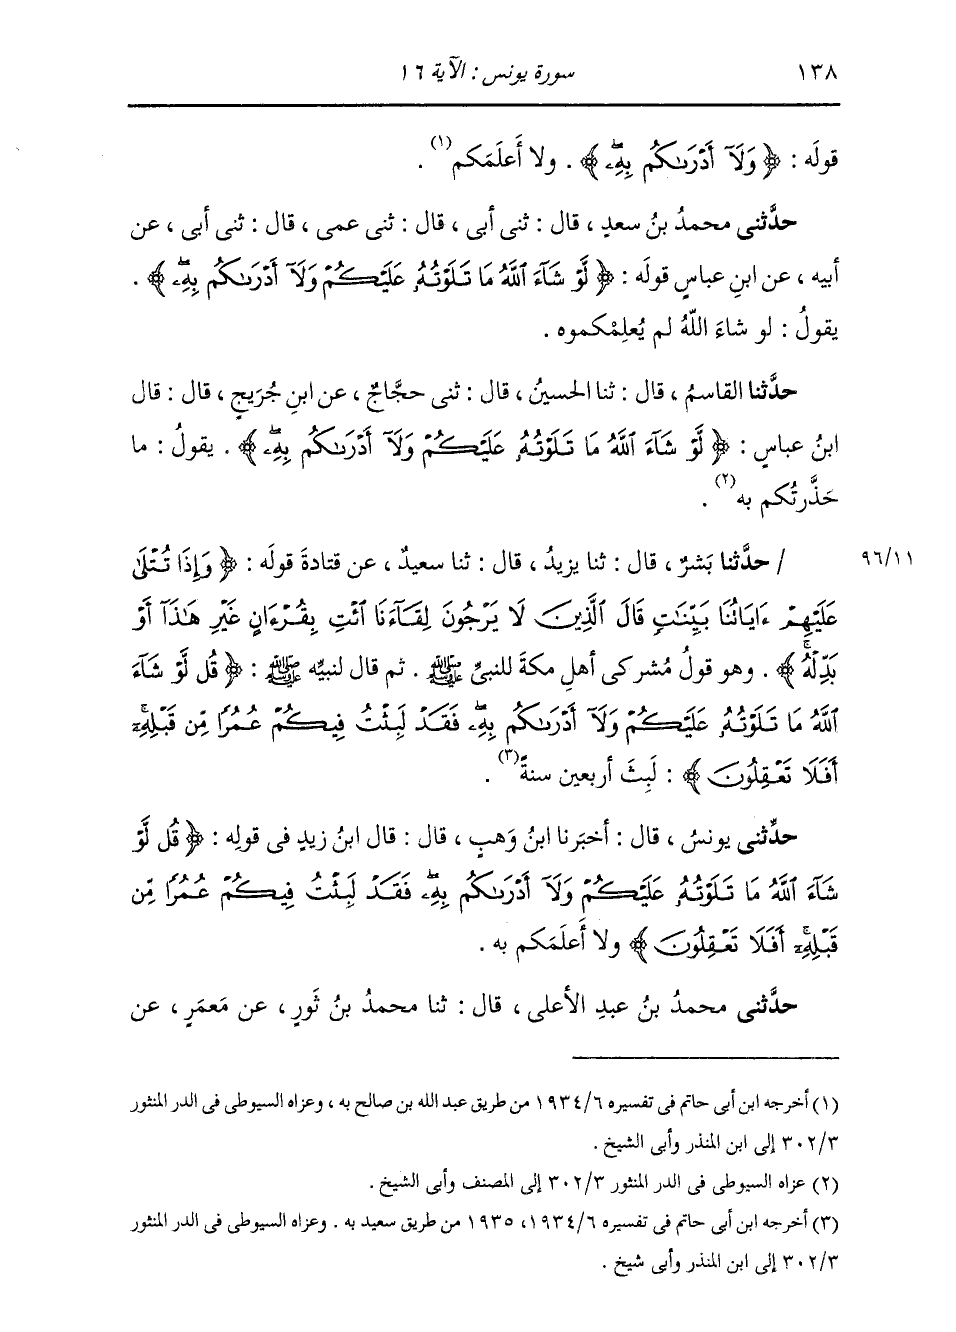 ١٣٨ سورة يونس : الآية ١٦
قولَه : ﴿ وَلَآ أَدْرَىٰكُم بِهِۦۖ ﴾ . ولا أَعلَمَكم(١) .
حدَّثنى محمدُ بنُ سعدٍ ، قال : ثنى أبى ، قال : ثنى عمى ، قال : ثنى أبى ، عن
أبيه ، عن ابنِ عباسٍ قولَه : ﴿ لَّوْ شَآءَ ٱللَّهُ مَا تَلَوْتُهُۥ عَلَيْكُمْ وَلَآ أَدْرَىٰكُم بِهِۦۖ ﴾ .
يقولُ : لو شاءَ اللَّهُ لم يُعلِمْكموه .
حدَّثنا القاسمُ ، قال : ثنا الحسينُ ، قال : ثنى حجَّاجٌ ، عن ابنِ جُرَيجٍ ، قال : قال
ابنُ عباسٍ : ﴿ لَّوْ شَآءَ ٱللَّهُ مَا تَلَوْتُهُۥ عَلَيْكُمْ وَلَآ أَدْرَىٰكُم بِهِۦۖ ﴾ . يقولُ : ما
حَذَّرتُكم به(٢) .
٩٦/١١ / حدَّثنا بَشرٌ ، قال : ثنا يزيدُ ، قال : ثنا سعيدٌ ، عن قتادةَ قولَه : ﴿ وَإِذَا تُتْلَىٰ
عَلَيْهِمْ ءَايَاتُنَا بَيِّنَٰتٍ قَالَ ٱلَّذِينَ لَا يَرْجُونَ لِقَآءَنَا ٱئْتِ بِقُرْءَانٍ غَيْرِ هَٰذَآ أَوْ
بَدِّلْهُۚ ﴾ . وهو قولُ مُشركى أهلِ مكةَ للنبىِّ ﷺ . ثم قال لنبيِّه ﷺ : ﴿ قُل لَّوْ شَآءَ
ٱللَّهُ مَا تَلَوْتُهُۥ عَلَيْكُمْ وَلَآ أَدْرَىٰكُم بِهِۦۖ فَقَدْ لَبِثْتُ فِيكُمْ عُمُرًا مِّن قَبْلِهِۦٓۚ
أَفَلَا تَعْقِلُونَ ﴾ : لَبِثَ أربعين سنةً(٣) .
حدِّثنى يونسُ ، قال : أخبَرنا ابنُ وَهبٍ ، قال : قال ابنُ زيدٍ فى قولِه : ﴿ قُل لَّوْ
شَآءَ ٱللَّهُ مَا تَلَوْتُهُۥ عَلَيْكُمْ وَلَآ أَدْرَىٰكُم بِهِۦۖ فَقَدْ لَبِثْتُ فِيكُمْ عُمُرًا مِّن
قَبْلِهِۦٓۚ أَفَلَا تَعْقِلُونَ ﴾ ولا أَعلَمَكم به .
حدَّثنى محمدُ بنُ عبدِ الأعلى ، قال : ثنا محمدُ بنُ ثَورٍ ، عن مَعمَرٍ ، عن
(١) أخرجه ابن أبى حاتم فى تفسيره ١٩٣٤/٦ من طريق عبد الله بن صالح به ، وعزاه السيوطى فى الدر المنثور
٣٠٢/٣ إلى ابن المنذر وأبى الشيخ .
(٢) عزاه السيوطى فى الدر المنثور ٣٠٢/٣ إلى المصنف وأبى الشيخ .
(٣) أخرجه ابن أبى حاتم فى تفسيره ١٩٣٤/٦، ١٩٣٥ من طريق سعيد به . وعزاه السيوطى فى الدر المنثور
٣٠٢/٣ إلى ابن المنذر وأبى شيخ .